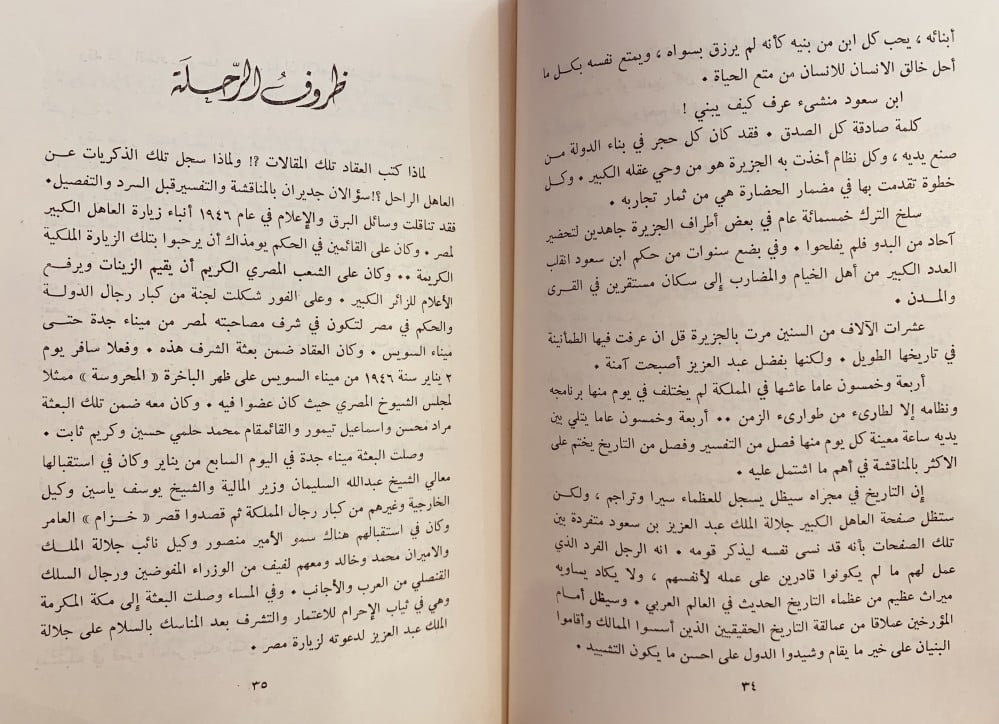 أبنائه ، يحب كل ابن من بنيه كأنه لم يرزق بسواه ، ويمتع نفسه بكل ما
أحل خالق الانسان للانسان من متع الحياة .
ابن سعود منشىء عرف كيف يبني !
كلمة صادقة كل الصدق . فقد كان كل حجر في بناء الدولة من
صنع يديه ، وكل نظام أخذت به الجزيرة هو من وحي عقله الكبير . وكل
خطوة تقدمت بها في مضمار الحضارة هي من ثمار تجاربه .
سلخ الترك خمسمائة عام في بعض أطراف الجزيرة جاهدين لتحضير
آحاد من البدو فلم يفلحوا . وفي بضع سنوات من حكم ابن سعود انقلب
العدد الكبير من أهل الخيام والمضارب إلى سكان مستقرين في القرى
والمـدن .
عشرات الآلاف من السنين مرت بالجزيرة قل ان عرفت فيها الطمأنينة
في تاريخها الطويل . ولكنها بفضل عبد العزيز أصبحت آمنة .
أربعة وخمسون عاما عاشها في المملكة لم يختلف في يوم منها برنامجه
ونظامه إلا لطارىء من طوارىء الزمن .. أربعة وخمسون عاما يتلي بين
يديه ساعة معينة كل يوم منها فصل من التفسير وفصل من التاريخ يختم على
الاكثر بالمناقشة في أهم ما اشتمل عليه .
إن التاريخ في مجراه سيظل يسجل للعظماء سيرا وتراجم ، ولكـن
ستظل صفحة العاهل الكبير جلالة الملك عبد العزيز بن سعود متفردة بين
تلك الصفحات بأنه قد نسى نفسه ليذكر قومه . انه الرجل الفرد الذي
عمل لهم ما لم يكونوا قادرين على عمله لأنفسهم ، ولا يكاد يساويه
ميراث عظيم من عظماء التاريخ الحديث في العالم العربي . وسيظل أمـام
المؤرخين عملاقا من عمالقة التاريخ الحقيقيين الذين أسسوا الممالك وأقاموا
البنيان على خير ما يقام وشيدوا الدول على احسن ما يكون التشييد .
٣٤
ظروف الرحلة
لماذا كتب العقاد تلك المقالات ؟! ولماذا سجل تلك الذكريات عـن
العاهل الراحل ؟! سؤالان جديران بالمناقشة والتفسير قبل السرد والتفصيل .
فقد تناقلت وسائل البرق والإعلام في عام ١٩٤٦ أنباء زيارة العاهل الكبير
لمصر . وكان على القائمين في الحكم يومذاك أن يرحبوا بتلك الزيارة الملكية
الكريمة .. وكان على الشعب المصري الكريم أن يقيم الزينات ويرفـع
الأعلام للزائر الكبير . وعلى الفور شكلت لجنة من كبار رجال الدولـة
والحكم في مصر لتكون في شرف مصاحبته لمصر من ميناء جدة حتـى
ميناء السويس . وكان العقاد ضمن بعثة الشرف هذه . وفعلا سافر يوم
٢ يناير سنة ١٩٤٦ من ميناء السويس على ظهر الباخرة « المحروسة » ممثلا
لمجلس الشيوخ المصري حيث كان عضوا فيه . وكان معه ضمن تلك البعثة
مراد محسن واسماعيل تيمور والقائمقام محمد حلمي حسين وكريم ثابت .
وصلت البعثة ميناء جدة في اليوم السابع من يناير وكان في استقبالها
معالي الشيخ عبدالله السليمان وزير المالية والشيخ يوسف ياسين وكيل
الخارجية وغيرهم من كبار رجال المملكة ثم قصدوا قصر « خـزام » العامر
وكان في استقبالهم هناك سمو الأمير منصور وكيل نائب جلالة الملـك
والاميران محمد وخالد ومعهم لفيف من الوزراء المفوضين ورجال السلك
القنصلي من العرب والأجانب . وفي المساء وصلت البعثة إلى مكة المكرمة
وهي في ثياب الإحرام للاعتمار والتشرف بعد المناسك بالسلام على جلالة
الملك عبد العزيز لدعوته لزيارة مصر .
٣٥